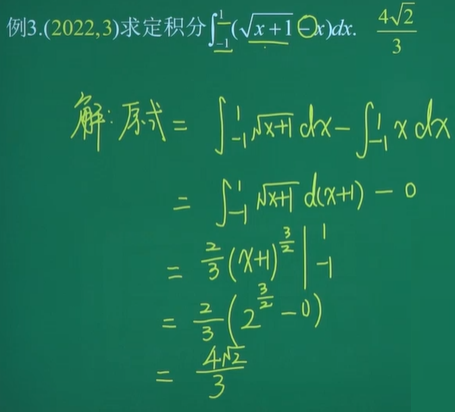 例3.(2022,3)求定积分∫₋₁¹(√(x+1)−x)dx. 4√2/3
解:原式= ∫₋₁¹ √(x+1) dx − ∫₋₁¹ x dx
= ∫₋₁¹ √(x+1) d(x+1) − 0
= 2/3 (x+1)^(3/2) |₋₁¹
= 2/3 (2^(3/2) − 0)
= 4√2/3